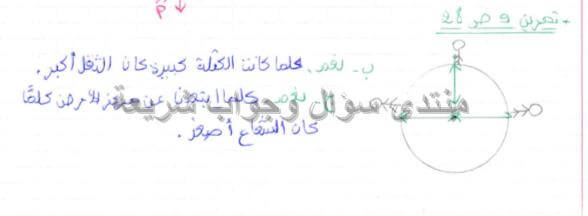 P
- تمرين 9 ص 28
ب - نعم، كلما كانت الكتلة كبيرة كان الثقل أكبر.
نعم كلما ابتعدنا عن مركز الأرض كلما
كان الشعاع أصغر.
منتدى سؤال وجواب شريعة